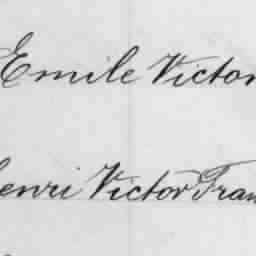 Emile Victor
enri Victor Fran